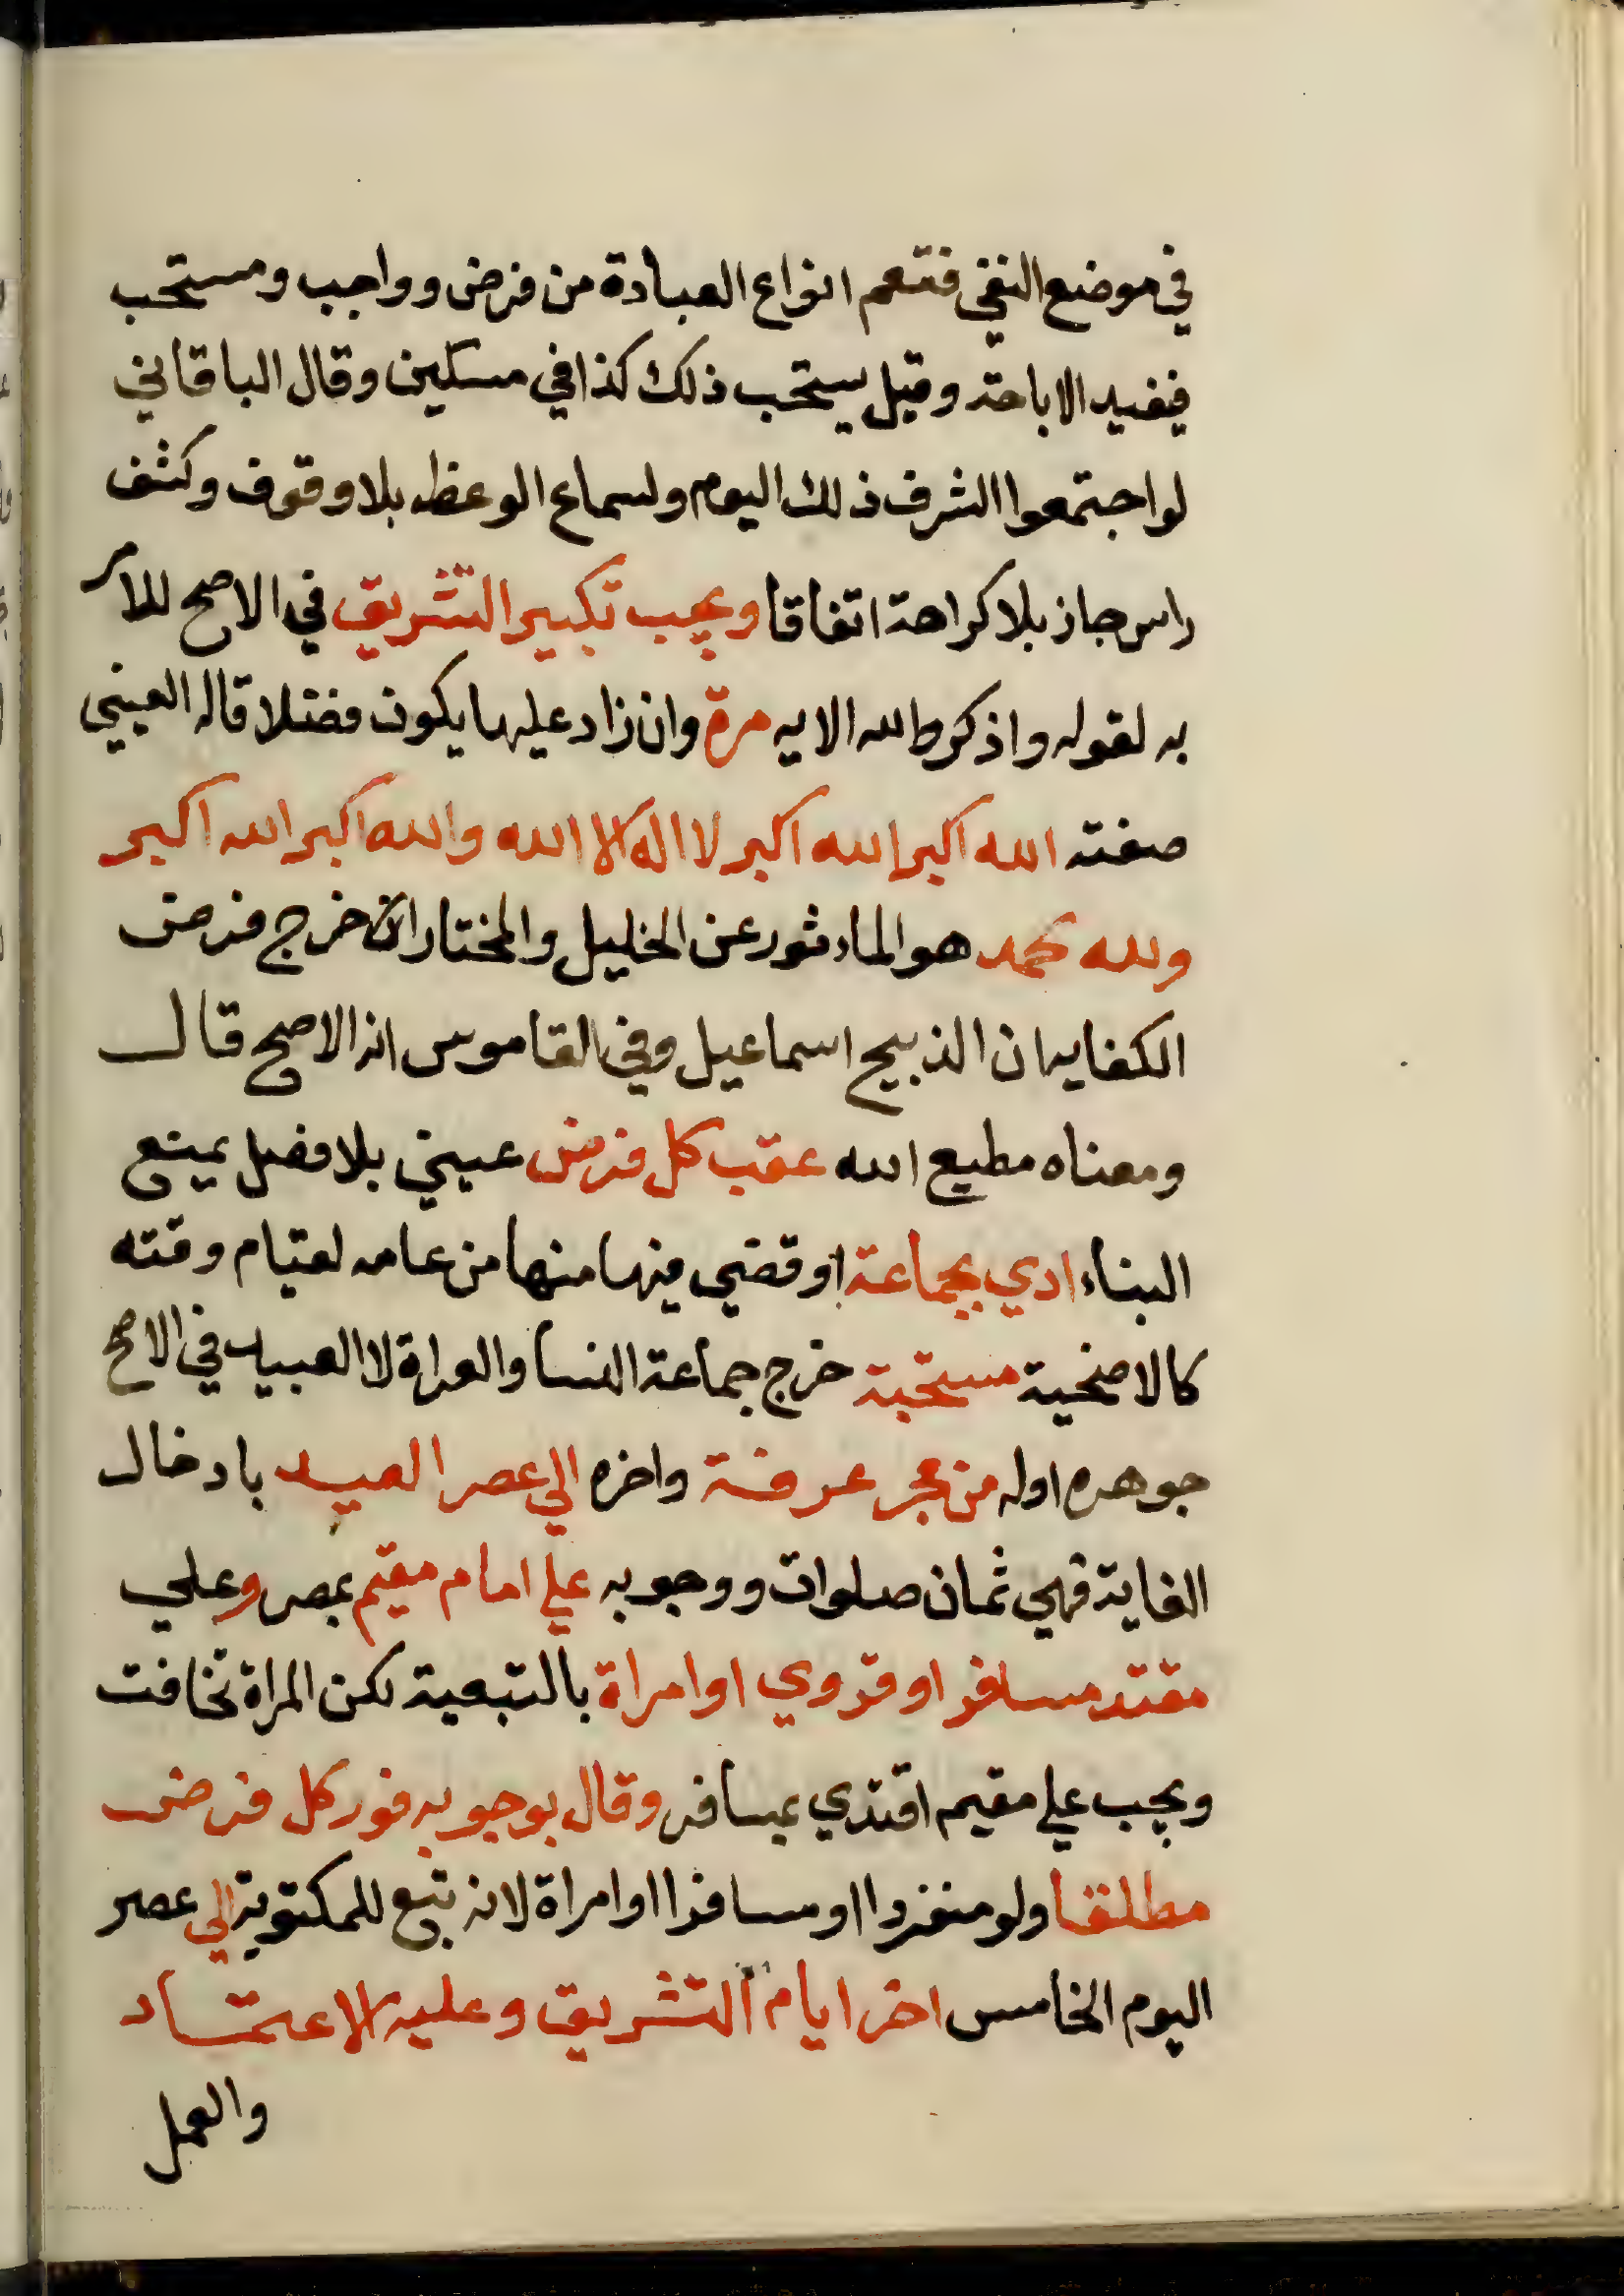 في موضع النفي فتعم انواع العبادة من فرض وواجب ومستحب
فيفيد الاباحة وقيل يستحب ذلك كذا في مسكين وقال الباقاني
لو اجتمعوا الشرف ذلك اليوم ولسماع الوعظ بلا وقوف وكشف
راس جاز بلا كراهة اتفاقا ويجب تكبير التشريق في الاصح للامر
به لقوله واذكروا الله الايه مرة وان زاد عليها يكون فضلا قاله العيني
صفته الله اكبر الله اكبر لا اله الا الله والله اكبر الله اكبر
ولله لحمد هو الماءثور عن الخليل والمختاران خرج فرض
الكفايه ان الذبيح اسماعيل وفي القاموس انه الاصح قال
ومعناه مطيع الله عقب كل فرض عيني بلا فصل يمنع
البناء ادي بجماعة او قضي فيها منها من عامه لقيام وقته
كالاضحية مستحبة خرج جماعة النسا والعراة لا العبيد في الاصح
جوهره اوله من فجر عرفة واخره الي عصر العيد بادخال
الغاية فهي ثمان صلوات ووجوبه علي امام مقيم بمصر وعلي
مقتد مسافر او قروي او امراة بالتبعية لكن المراة تخافت
ويجب علي مقيم اقتدي بمسافر وقال بوجوبه فور كل فرض
مطلقا ولو منفردا او مسافرا او امراة لانه تبع للمكتوبة الي عصر
اليوم الخامس اخر ايام التشريق وعليه الاعتماد
والعمل